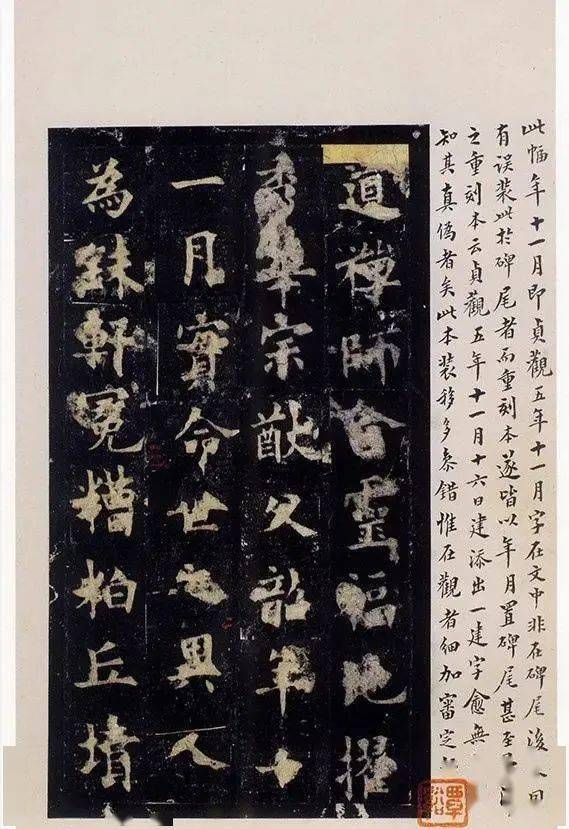 此幅年十一月即貞觀五年十一月字在文中非在碑尾後
有誤裝此於碑尾者而重刻本遂皆以年月置碑尾甚至
之重刻本云貞觀五年十一月十六日建添出一建字愈無
知其真偽者矣此本裝移多參錯惟在觀者細加審定
道禪師含靈福地擢
秀華宗猷韶年十
一月實命世之異人
為銖軒冕糟粕丘墳
覃谿